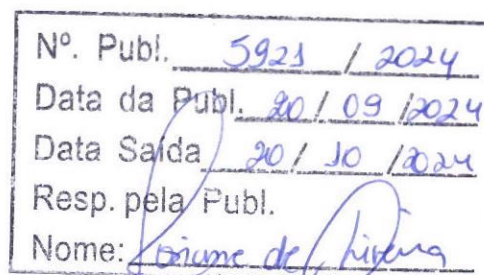 Nº. Publ. 5921 / 2024
Data da Publ. 20 / 09 / 2024
Data Saída 20 / 10 / 2024
Resp. pela Publ.
Nome: de